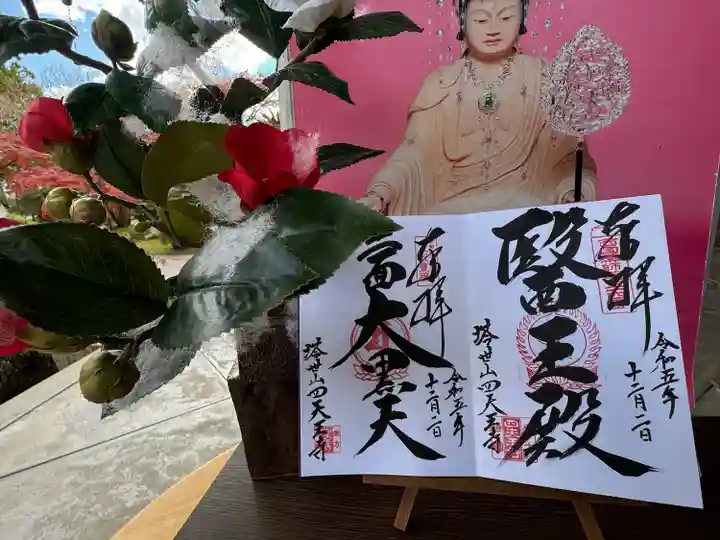 奉拝
醫王殿
令和五年
十二月二日
塔世山四天王寺
奉拝
富大黒天
令和五年
十二月二日
塔世山四天王寺